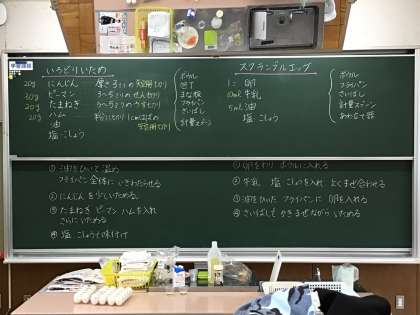 いろどりいため
20g にんじん 厚さ2mmの短冊切り
20g ピーマン 3〜5mmのせん切り
20g たまねぎ 3〜5mmのうす切り
20g ハム
短冊切り
油
塩 こしょう
ボウル
包丁
まな板
フライパン
さいばし
計量スプーン
スクランブルエッグ
1こ 卵
10ml 牛乳
5ml 油
塩 こしょう
ボウル
フライパン
さいばし
計量スプーン
あわたて器
① 油をひいて温め
フライパン全体に いきわたらせる
② にんじんを 少しいためる。
③ たまねぎ ピーマン ハムを入れ
さらにいためる
④ 塩 こしょうで味付け
① 卵をわり ボウルに入れる
② 牛乳 塩 こしょうを入れ よくまぜ合わせる
③ 油をひいた フライパンに 卵を入れる
④ さいばしで かきまぜながら いためる